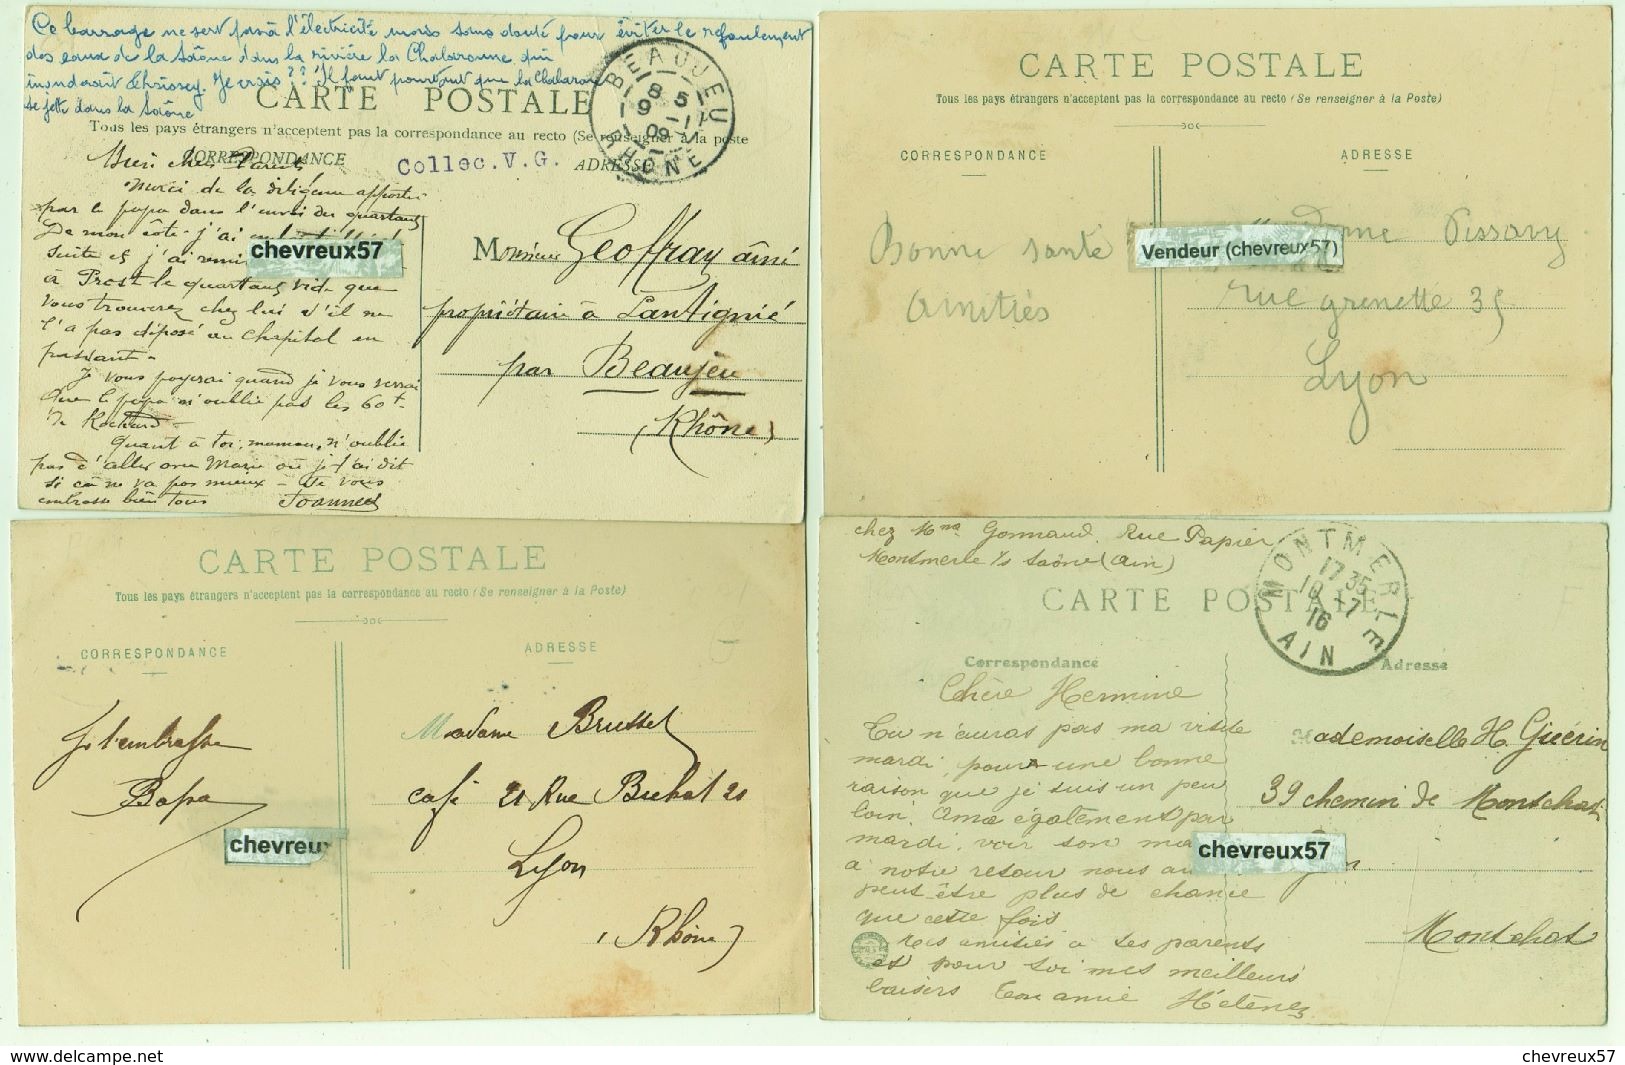 Ce barrage ne sert pas à l'électricité mais sans doute pour éviter le refoulement
des eaux de la Saône dans la rivière la Chalaronne qui
inonderait Thoissey. Je crois ?? Il faut pourtant que la Chalaron
se jette dans la Saône
CARTE POSTALE
Tous les pays étrangers n'acceptent pas la correspondance au recto (Se renseigner à la poste
CORRESPONDANCE
Collec.V.G.
ADRESSE
BEAUJEU
8 5
9 - 11
09
RHONE
Mes chers Parents
Merci de la diligence apportée
par le papa dans l'envoi du quartaud
De mon côté j'ai
suite et j'ai remis
à Prost le quartaud vide que
vous trouverez chez lui s'il ne
l'a pas déposé au Chapital en
passant -
Je vous payerai quand je vous verrai
Que le papa n'oublie pas les 60 f
de Rochard -
Quant à toi, maman, n'oublie
pas d'aller avec Marie où je t'ai dit
si ça ne va pas mieux - Je vous
embrasse bien tous Joannes
chevreux57
Monsieur Geoffray aîné
propriétaire à Lantignié
par Beaujeu
(Rhône)
CARTE POSTALE
Tous les pays étrangers n'acceptent pas la correspondance au recto (Se renseigner à la Poste)
CORRESPONDANCE
ADRESSE
Bonne santé
Amitiés
Vendeur (chevreux57)
Pissavy
rue grenette 35
Lyon
CARTE POSTALE
Tous les pays étrangers n'acceptent pas la correspondance au recto (Se renseigner à la Poste)
CORRESPONDANCE
ADRESSE
Je t'embrasse
Papa
chevreu
Madame Brussel
café 21 Rue Bichat 21
Lyon
(Rhône)
chez Mme Gonnaud. Rue Papier
Montmerle s/ Saône (Ain)
CARTE POSTALE
MONTMERLE
17 35
10 - 7
16
AIN
Correspondance
Adresse
Chère Hermine
Tu n'auras pas ma visite
mardi, pour une bonne
raison que je suis un peu
loin. Ama également par
mardi, voir son ma
à notre retour nous au
peut-être plus de chance
que cette fois
Mes amitiés à tes parents
et pour toi mes meilleurs
baisers Ton amie Hélène
chevreux57
Mademoiselle H. Guérin
39 chemin de Montchat
Montchat
chevreux57